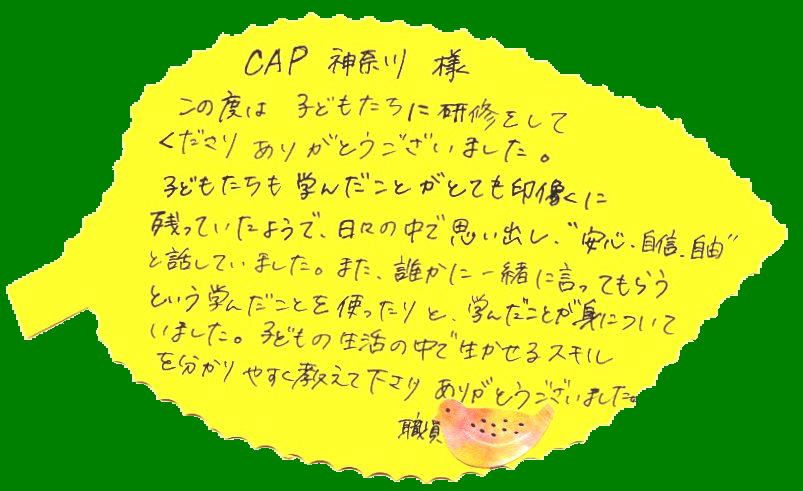 CAP 神奈川 様
この度は 子どもたちに研修をして
くださり ありがとうございました。
子どもたちも 学んだことがとても印像くに
残っていたようで、日々の中で思い出し、"安心、自信、自由"
と話していました。また、誰かに一緒に言ってもらう
という学んだことを使ったりと、学んだことが身について
いました。子どもの生活の中で生かせるスキル
を分かりやすく教えて下さり ありがとうございました。
職員